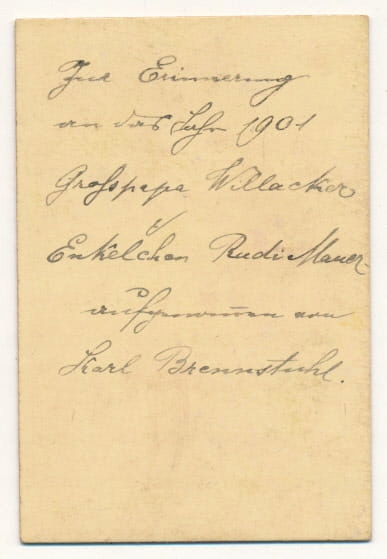 Zur Erinnerung
an das Jahr 1901
Grosspapa Willacker
u/
Enkelchen Rudi Mauer-
aufgenommen von
Karl Brennstuhl.